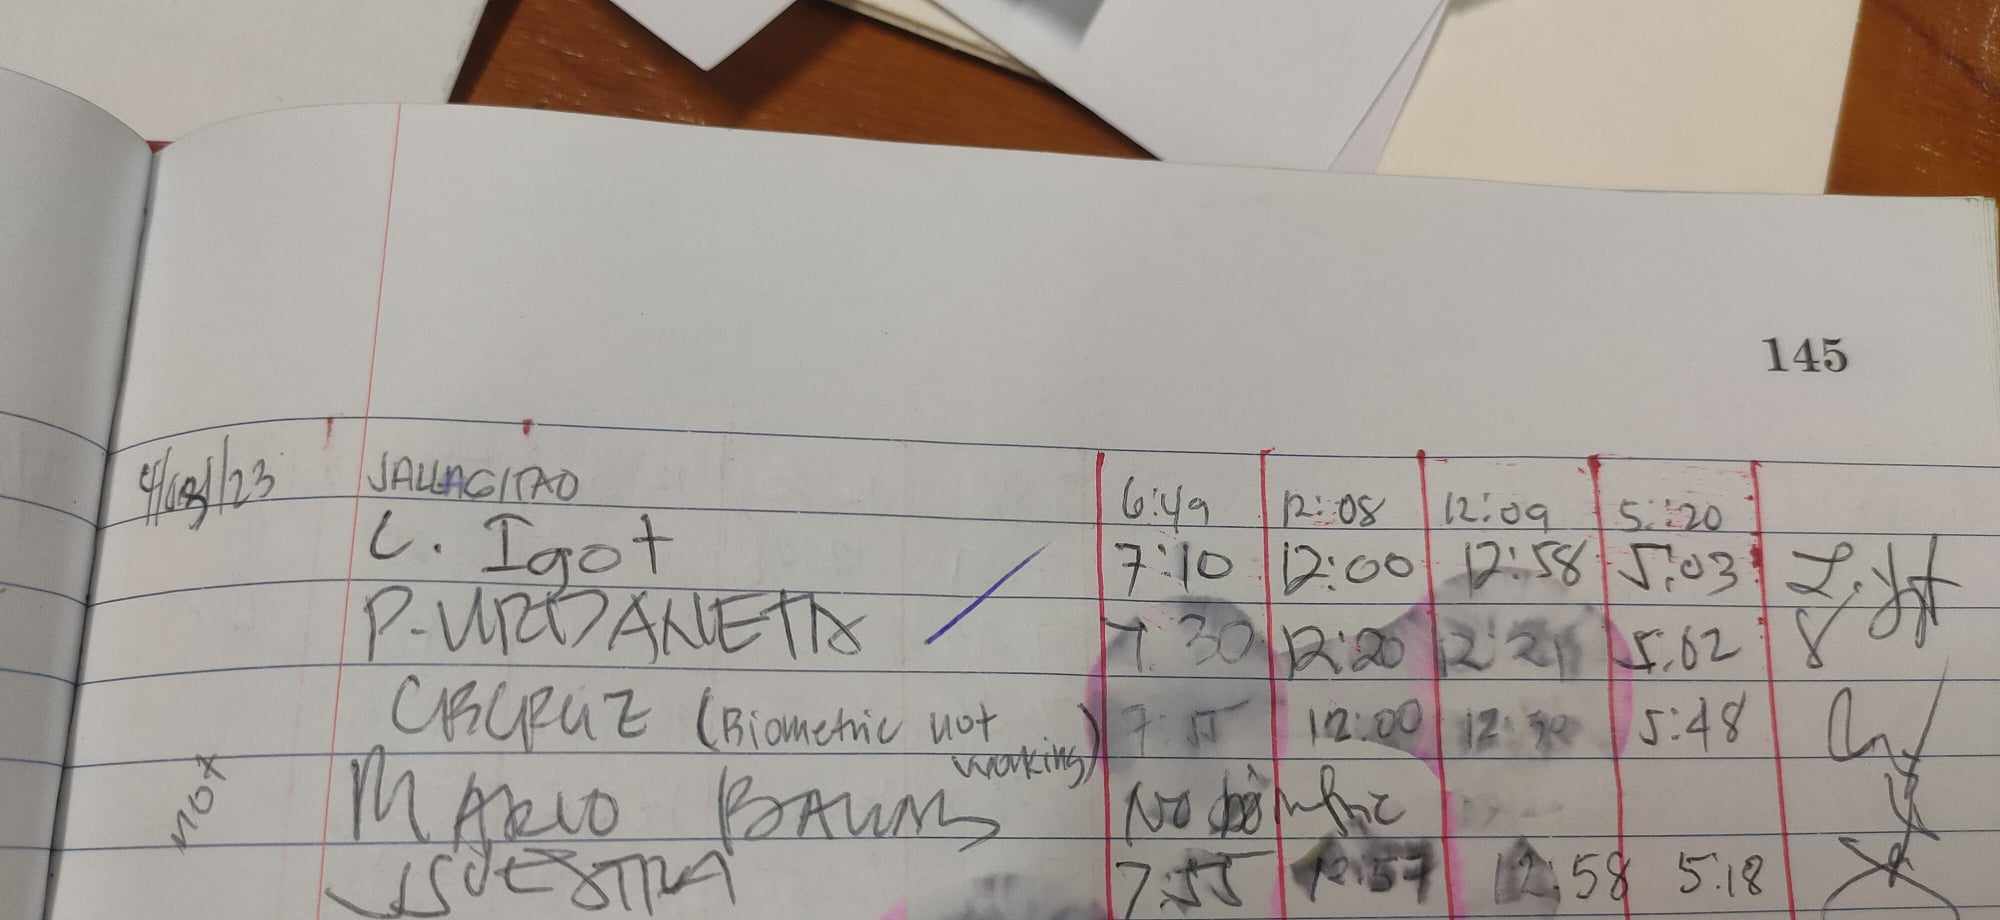 145
4/18/23 JALLAGITAO 6:49 12:08 12:09 5:20
C. Igot 7:10 12:00 12:58 5:03
P. URDANETA 7:30 12:20 12:21 5:02
CRCRUZ (Biometric not working) 7:55 12:00 12:30 5:48
MARIO No
7:55 12:57 12:58 5:18